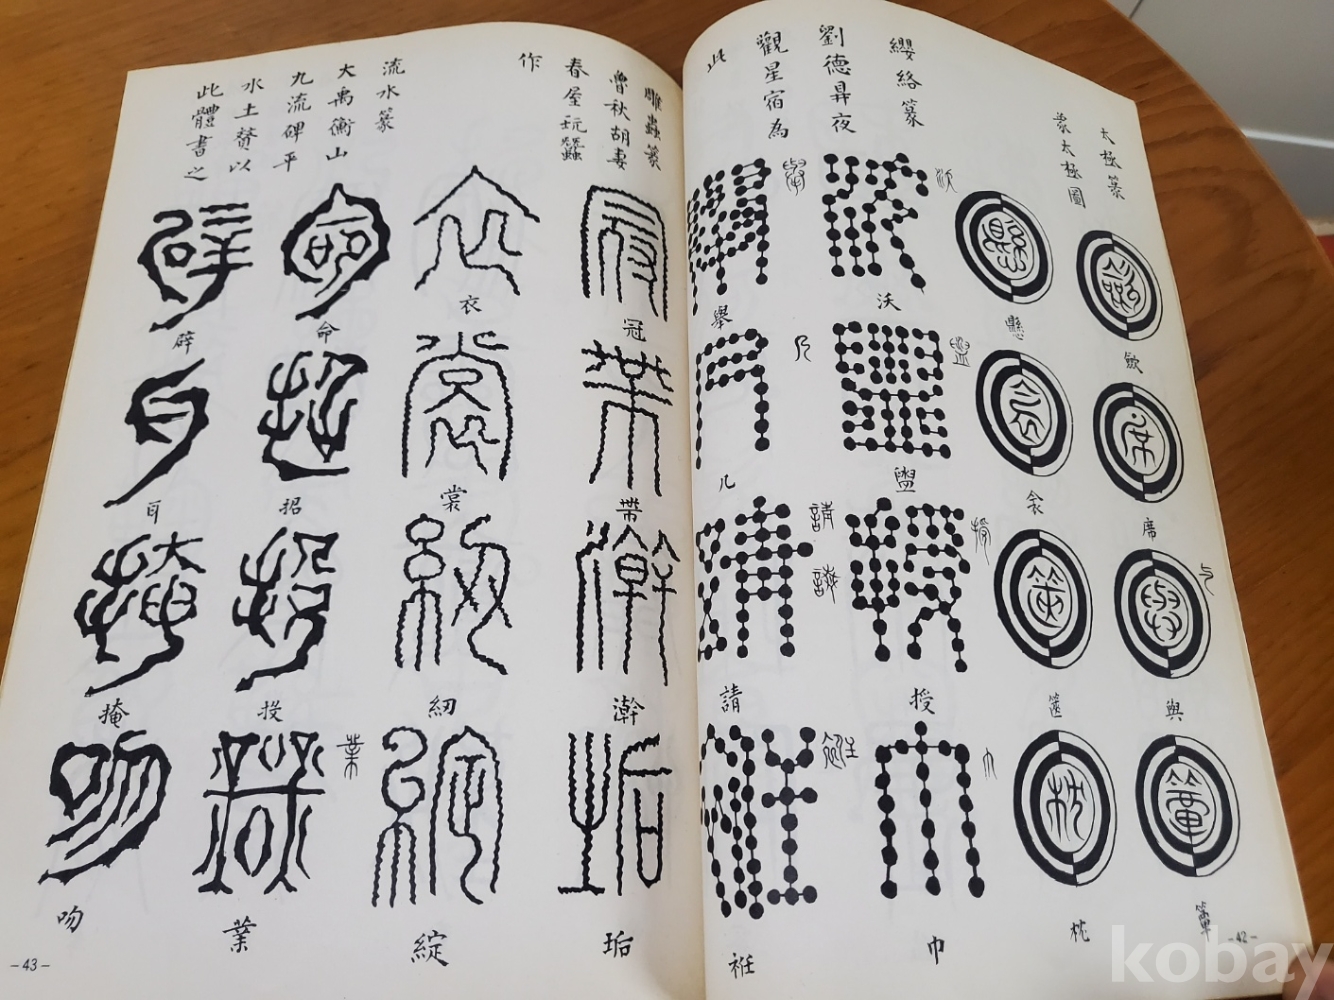 太極篆
象太極圖
纓絡篆
劉德昇夜
觀星宿為
此
歛
席
與
簟
懸
衾
篋
枕
沃
盥
授
巾
舉
几
請
衽
雕蟲篆
魯秋胡妻
春屋玩蠶
作
流水篆
大禹衡山
九流碑平
水土贊以
此體書之
冠
帶
澣
垢
衣
裳
紉
綻
命
招
投
業
辟
掩
吻
-42-
-43-
kobay